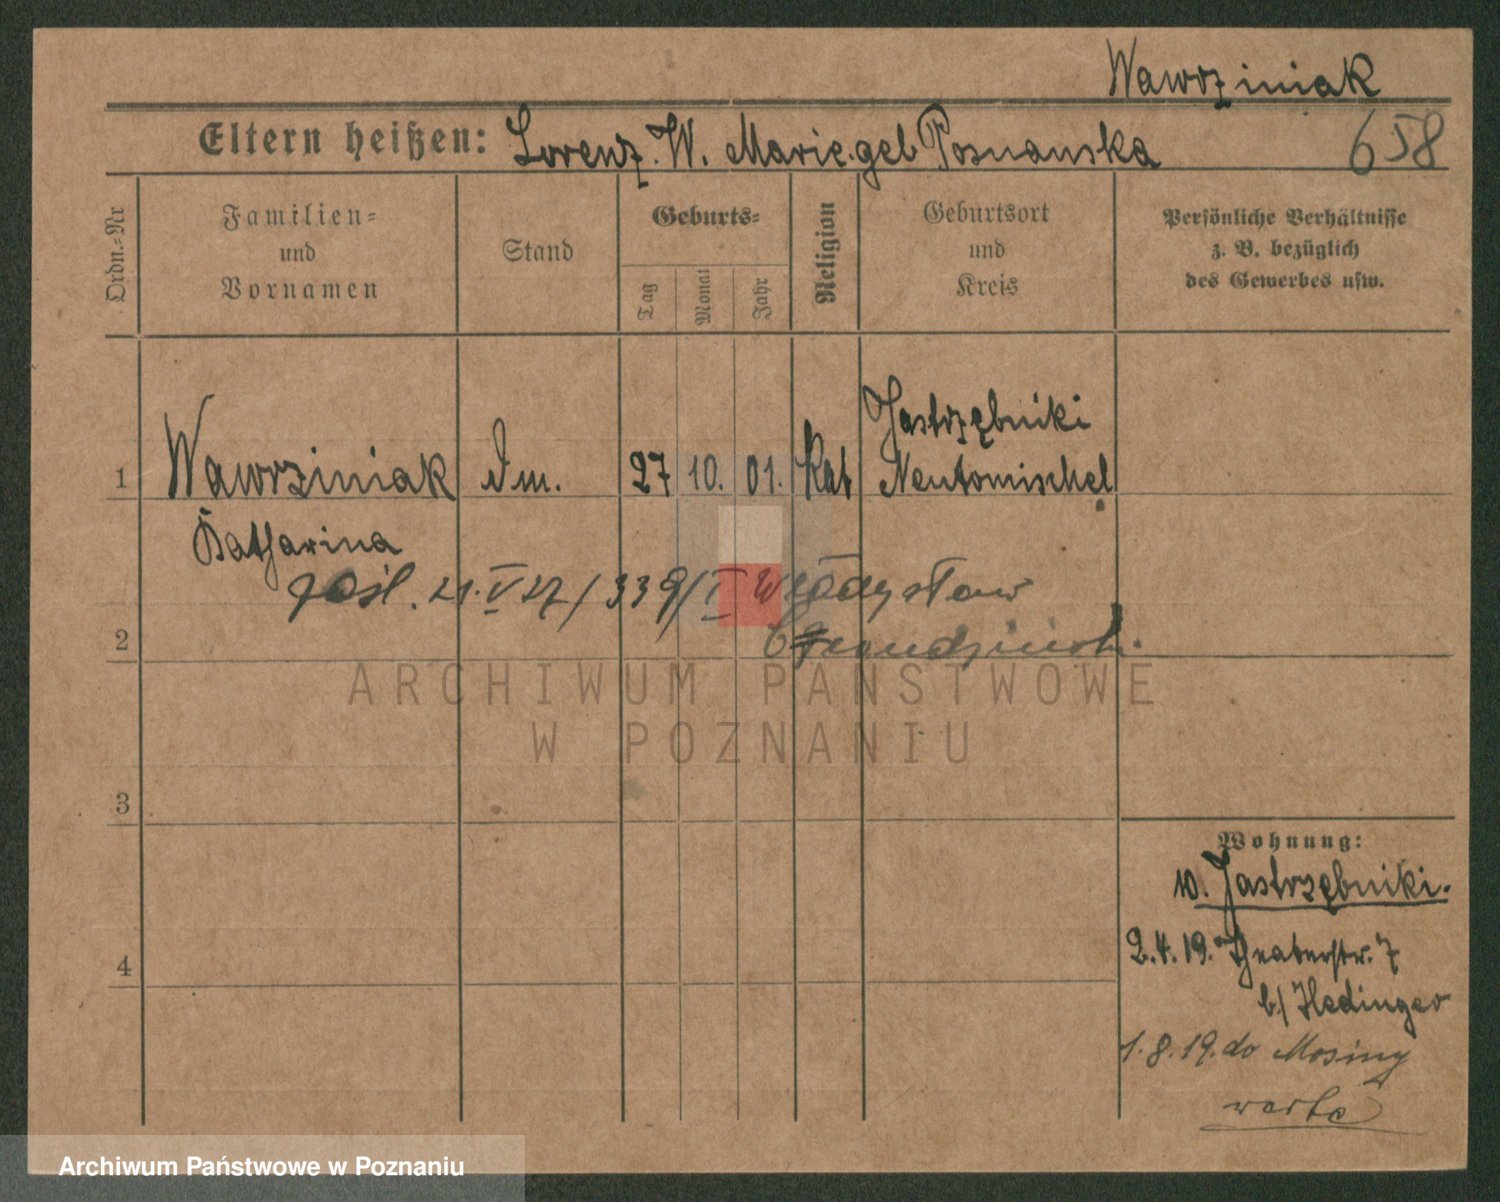 Wawrziniak
Eltern heißen: Lorenz W. Marie geb Posnanska
658
Ordn.=Nr
Familien=
und
Vornamen
Stand
Geburts=
Tag
Monat
Jahr
Religion
Geburtsort
und
Kreis
Persönliche Verhältnisse
z. B. bezüglich
des Gewerbes usw.
1 Wawrziniak Dm. 27 10. 01. Kat Jastrzębniki
Neutomischel
Katharina
21. V 27 / 339/I Władysław
2
ARCHIWUM PAŃSTWOWE
W POZNANIU
3
4
Wohnung:
10. Jastrzębniki.
2.4.19. Theaterstr. 7
b/ Hedinger
1.8.19. do Mosiny
Archiwum Państwowe w Poznaniu